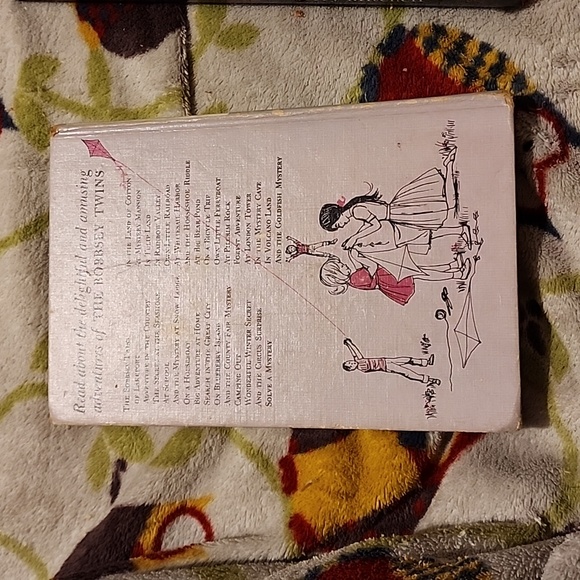 Read about the delightful and amusing
adventures of THE BOBBSEY TWINS
The Bobbsey Twins
Of Lakeport
Adventure in the Country
The Secret at the Seashore
At School
And the Mystery at Snow Lodge
On a Houseboat
Big Adventure at Home
Search in the Great City
On Blueberry Island
And the County Fair Mystery
Camping Out
Wonderful Winter Secret
And the Circus Surprise
Solve a Mystery
In the Land of Cotton
At Mystery Mansion
In Tulip Land
In Rainbow Valley
Own Little Railroad
At Whitesail Harbor
And the Horseshoe Riddle
At Big Bear Pond
On a Bicycle Trip
Own Little Ferryboat
At Pilgrim Rock
Forest Adventure
At London Tower
In the Mystery Cave
In Volcano Land
And the Goldfish Mystery